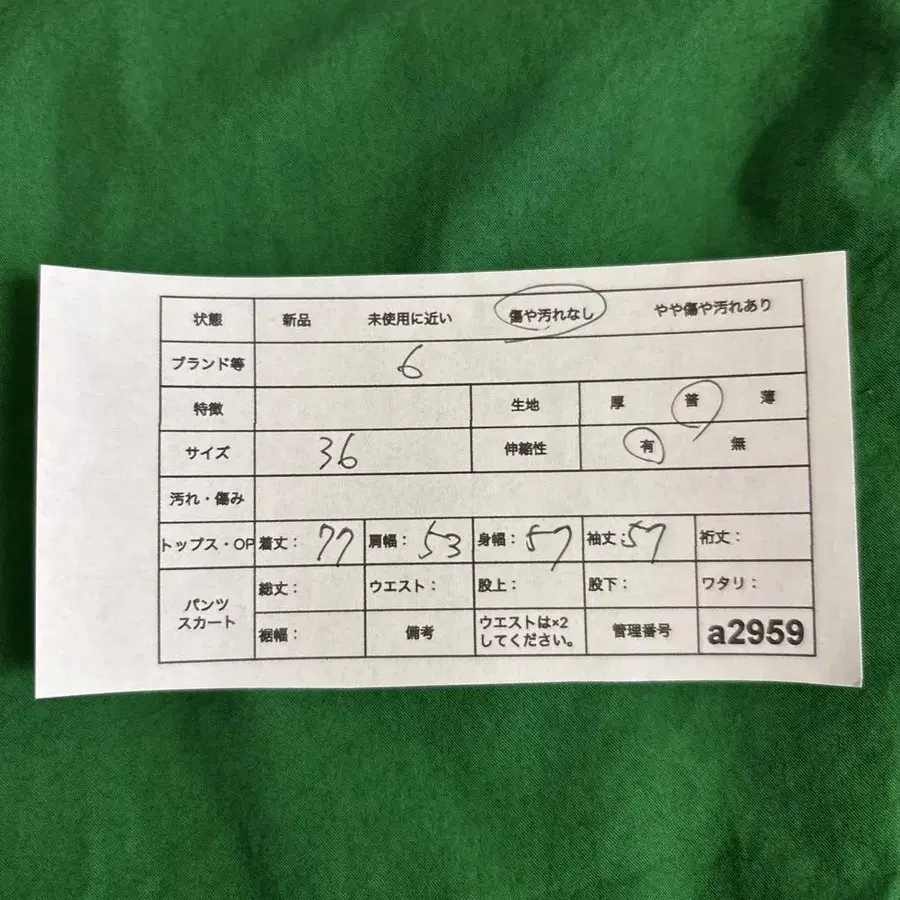 状態 新品 未使用に近い 傷や汚れなし やや傷や汚れあり
ブランド等 6
特徴 生地 厚 普 薄
サイズ 36 伸縮性 有 無
汚れ・傷み
トップス・OP 着丈: 77 肩幅: 53 身幅: 57 袖丈: 57 裄丈:
パンツ スカート 総丈: ウエスト: 股上: 股下: ワタリ:
裾幅: 備考 ウエストは×2 してください。 管理番号 a2959